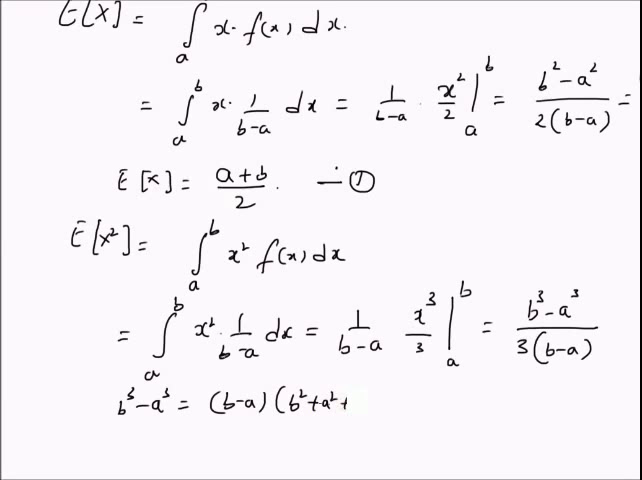 E[X] = ∫ₐ x·f(x) dx.
= ∫ₐᵇ x· 1/(b-a) dx = 1/(b-a) · x²/2 |ₐᵇ = (b²-a²)/(2(b-a)) =
E[X] = (a+b)/2. — ①
E[X²] = ∫ₐᵇ x² f(x) dx
= ∫ₐᵇ x² · 1/(b-a) dx = 1/(b-a) x³/3 |ₐᵇ = (b³-a³)/(3(b-a))
b³-a³ = (b-a) (b²+a²+